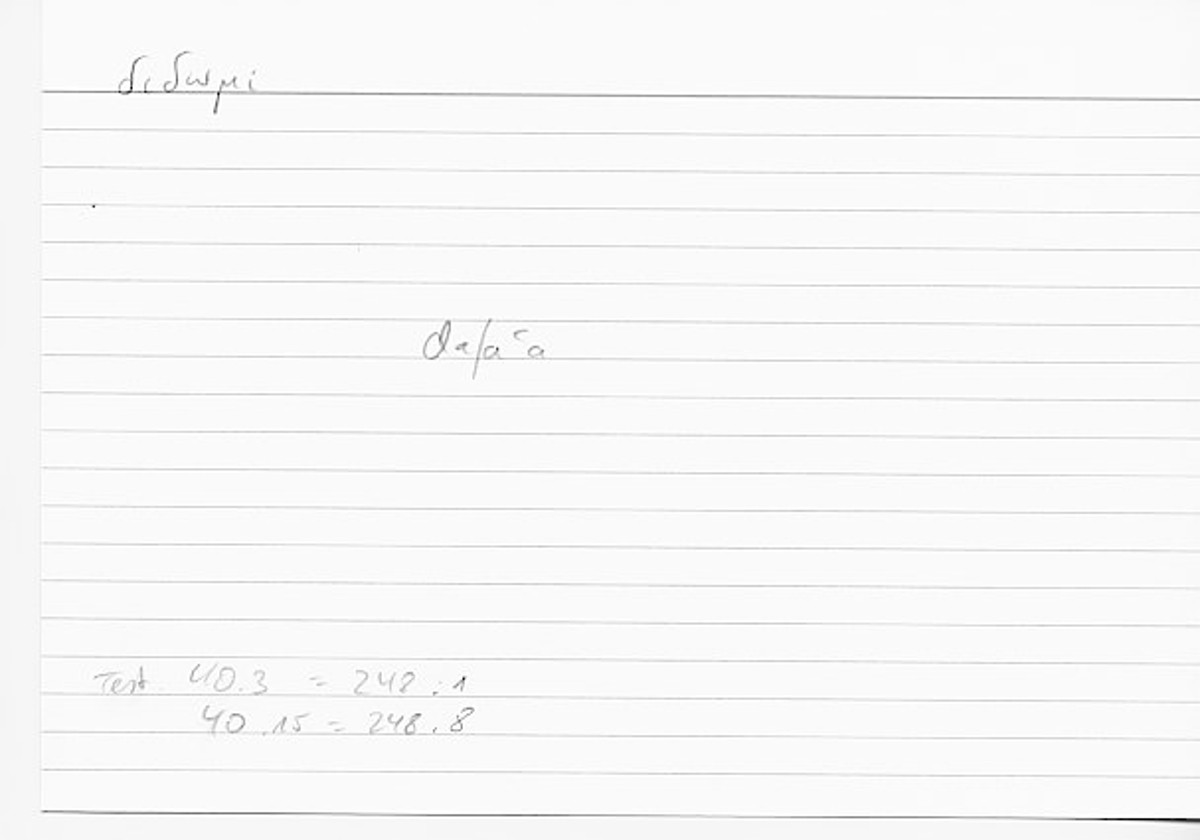 διδωμι
dafaʿa
Test 40.3 = 248.1
40.15 = 248.8